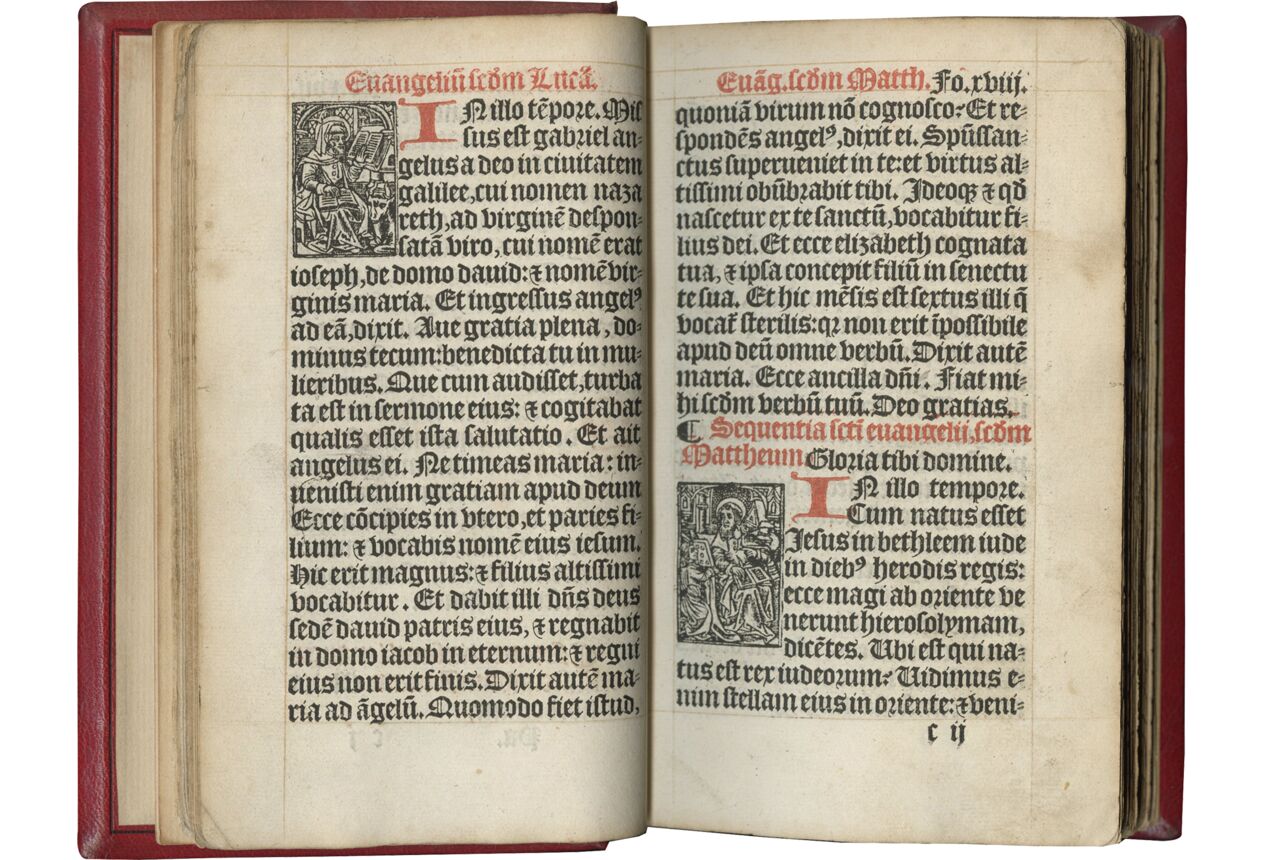 Euangeliū scd̄m Lucā.
IN illo tēpore. Mis
sus est gabriel an⸗
gelus a deo in ciuitatem
galilee, cui nomen naza
reth, ad virginē despon⸗
satā viro, cui nomē erat
ioseph, de domo dauid: ⁊ nomē vir⸗
ginis maria. Et ingressus angelꝰ
ad eā, dixit. Aue gratia plena, do⸗
minus tecum: benedicta tu in mu⸗
lieribus. Que cum audisset, turba
ta est in sermone eius: ⁊ cogitabat
qualis esset ista salutatio. Et ait
angelus ei. Ne timeas maria: in⸗
uenisti enim gratiam apud deum
Ecce cōcipies in vtero, et paries fi⸗
lium: ⁊ vocabis nomē eius iesum.
Hic erit magnus: ⁊ filius altissimi
vocabitur. Et dabit illi dn̄s deus
sedē dauid patris eius, ⁊ regnabit
in domo iacob in eternum: ⁊ regni
eius non erit finis. Dixit autē ma⸗
ria ad āgelū. Quomodo fiet istud,
Euāg. scd̄m Matth. Fo. xviij.
quoniā virum nō cognosco? Et re⸗
spondēs angelꝰ, dixit ei. Spūssan⸗
ctus superueniet in te: et virtus al⸗
tissimi obūbrabit tibi. Ideoqꝫ ⁊ qd̄
nascetur ex te sanctū, vocabitur fi⸗
lius dei. Et ecce elizabeth cognata
tua, ⁊ ipsa concepit filiū in senectu
te sua. Et hic mēsis est sextus illi q̄
vocat̄ sterilis: qꝛ non erit īpossibile
apud deū omne verbū. Dixit autē
maria. Ecce ancilla dn̄i. Fiat mi⸗
hi scd̄m verbū tuū. Deo gratias.
¶ Sequentia sct̄i euangelij, scd̄m
Mattheum Gloria tibi domine.
IN illo tempore.
Cum natus esset
Jesus in bethleem iude
in diebꝰ herodis regis:
ecce magi ab oriente ve
nerunt hierosolymam,
dicētes. Ubi est qui na⸗
tus est rex iudeorum? Uidimus e⸗
nim stellam eius in oriente: ⁊ veni⸗
c ij